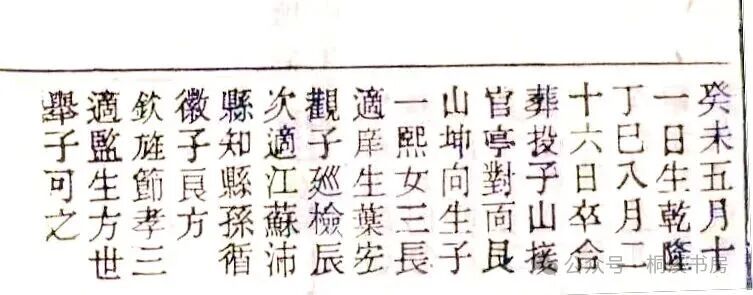 癸未五月十
一日生乾隆
丁巳八月二
十六日卒合
葬投子山接
官亭對面艮
山坤向生子
一熙女三長
適庠生葉宏
觀子廵檢辰
次適江蘇沛
縣知縣孫循
徽子良方
欽旌節孝三
適監生方世
舉子可之
公众号 桐溪书房